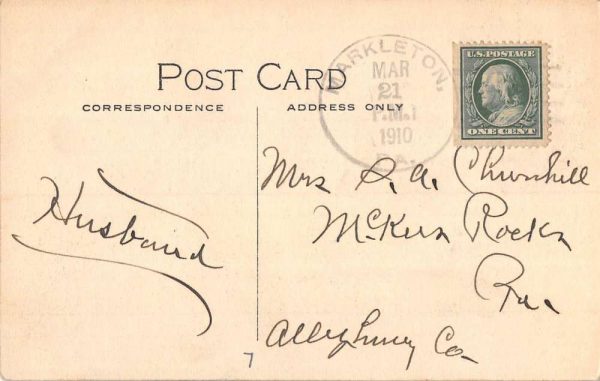 POST CARD
CORRESPONDENCE
ADDRESS ONLY
MARKLETON,
MAR
21
P.M.
1910
PA.
U.S. POSTAGE
ONE CENT
Husband
Mrs S. A. Churchill
McKees Rocks
Pa.
Allegheny Co
7